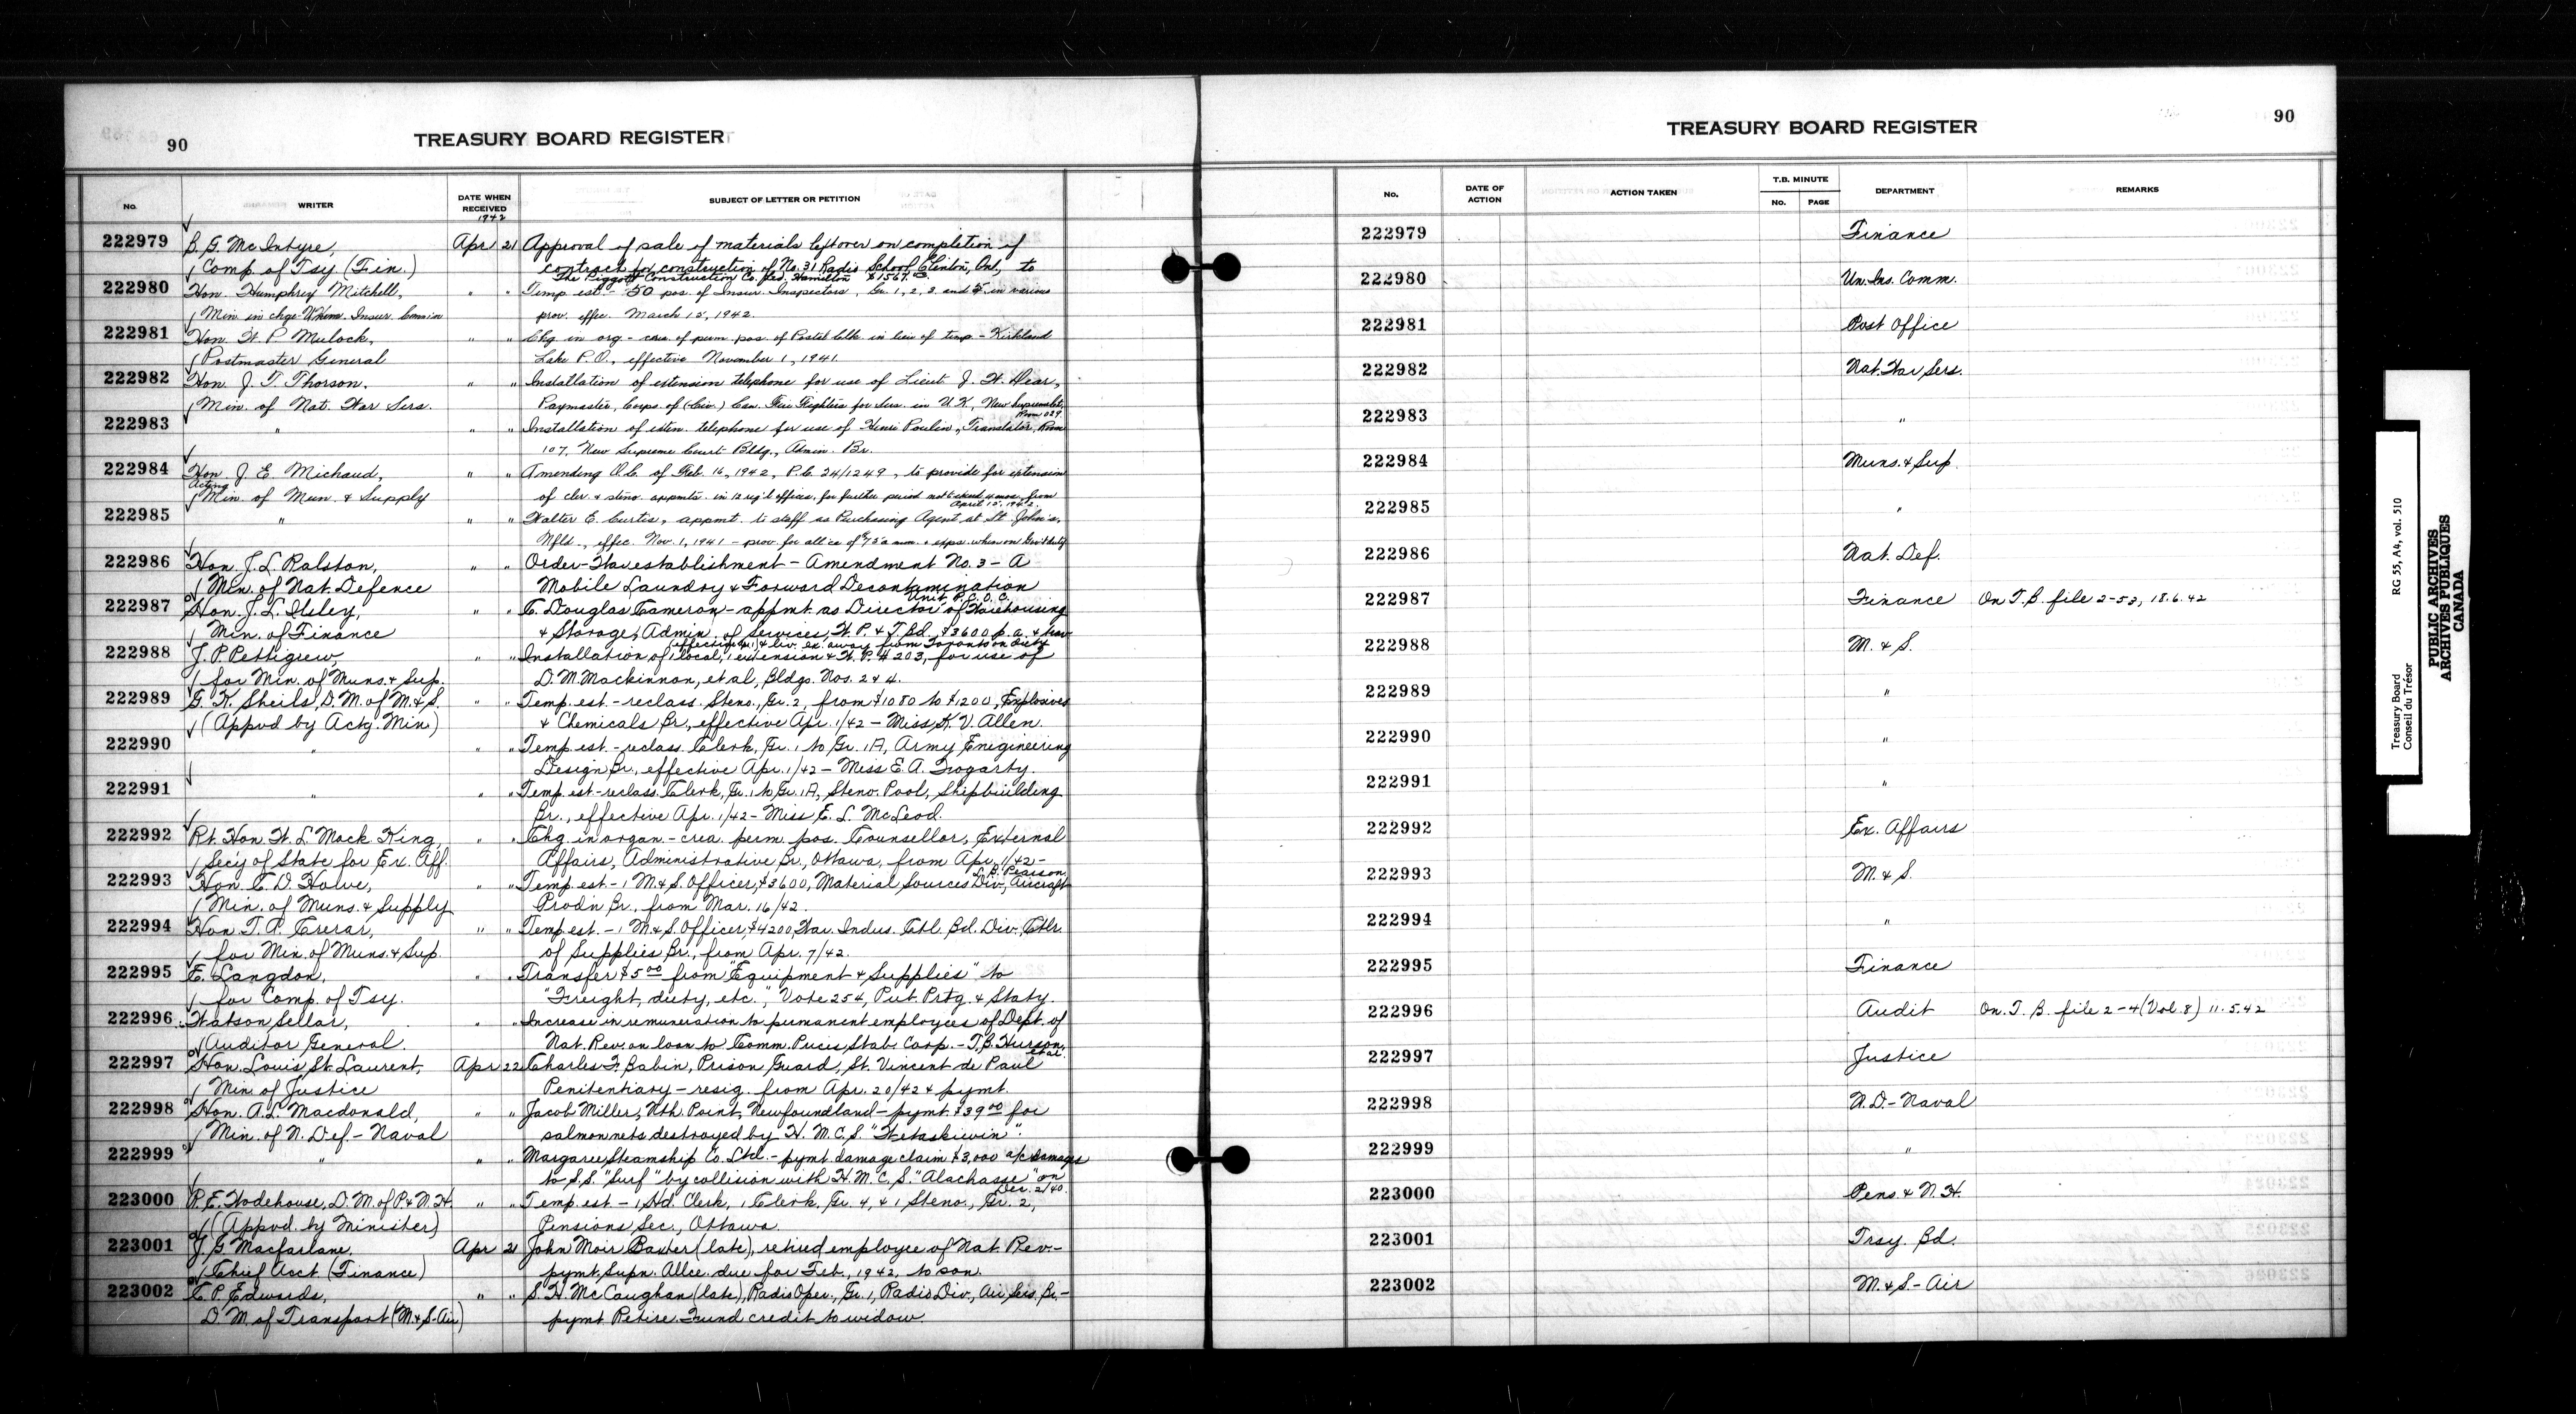 90
TREASURY BOARD REGISTER
No.
WRITER
DATE WHEN RECEIVED
1942
SUBJECT OF LETTER OR PETITION
222979 B. G. McIntyre, Apr 21 Approval of sale of materials leftover on completion of
Comp. of Tsy. (Fin.) contract for construction of No. 31 Radio School, Clinton, Ont., to
The Piggott Construction Co. Ltd. Hamilton
222980 Hon. Humphrey Mitchell, " " Temp est - 50 pos. of Insur. Inspectors, Gr. 1, 2, 3 and 5 in various
Min. in chge Unem. Insur. Commion prov. effec. March 15, 1942.
222981 Hon. W. P. Mulock, " " Chg in org - crea of perm. pos. of Postal Clk in lieu of temp - Kirkland
Postmaster General Lake P.O., effective November 1, 1941.
222982 Hon. J. T. Thorson, " " Installation of extension telephone for use of Lieut J. W. Dear,
Min. of Nat. War Sers. Paymaster, Corps. of (Civ.) Can. Fire Fighters for Serv. in U.K., New Supreme
Room 029.
222983 " " " Installation of exten. telephone for use of Henri Poulin, Translator, Room
107, New Supreme Court Bldg., Admin. Br.
222984 Hon. J. E. Michaud, " " Amending O.C. of Feb. 16, 1942, P.C. 24/1249, to provide for extension
Acting Min. of Mun. & Supply of cler. & steno. appmts. in 12 reg'l offices, for further period not exceed. 4 mos. from
April 15, 1942.
222985 " " " Walter E. Curtis, appmt. to staff as Purchasing Agent at St. John's,
Nfld., effec. Nov. 1, 1941 - prov. for all'ce of $75 a mon. & exps. when on Gov't duty
222986 Hon. J. L. Ralston, " " Order - War establishment - Amendment No. 3 - A
Min. of Nat. Defence Mobile Laundry & Forward Decontamination
Unit, R.C.O.C.
222987 Hon. J. L. Ilsley, " " C. Douglas Cameron - appmt. as Director of Warehousing
Min. of Finance & Storage, Admin. of Services, W. P. & T. Bd. $3600 p.a. & trav
& liv. ex. away from Toronto on duty
222988 J. P. Pettigrew, " " Installation of 1 local, 1 extension & W. P. # 203, for use of
for Min. of Muns. & Sup. D. M. Mackinnon, et al, Bldgs. Nos. 2 & 4.
222989 G. K. Sheils, D. M. of M. & S. " " Temp. est. - reclass. Steno., Gr. 2, from $1080 to $1200, Explosives
(Appvd by Actg. Min.) & Chemicals Br., effective Apr. 1/42 - Miss K. V. Allen.
222990 " " " Temp. est. - reclass. Clerk, Gr. 1 to Gr. 1A, Army Enigineering
Design Br., effective Apr. 1/42 - Miss E. A. Fogarty.
222991 " " " Temp. est - reclass. Clerk, Gr. 1 to Gr. 1A, Steno. Pool, Shipbuilding
Br., effective Apr. 1/42 - Miss E. L. McLeod.
222992 Rt. Hon. W. L. Mack. King, " " Chg. in organ. - crea. perm. pos. Counsellor, External
Sec'y of State for Ex. Aff. Affairs, Administrative Br., Ottawa, from Apr. 1/42 -
L. B. Pearson
222993 Hon. C. D. Howe, " " Temp. est - 1 M. & S. Officer, $3600, Material Sources Div., Aircraft
Min. of Muns. & Supply Prod'n Br., from Mar. 16/42.
222994 Hon T. A. Crerar, " " Temp. est. - 1 M. & S. Officer, $4200, War. Indus. Ctl. Bd. Div., Ctlr.
for Min. of Muns. & Sup. of Supplies Br., from Apr. 7/42.
222995 C. Langdon, " " Transfer $5.00 from "Equipment & Supplies" to
for Comp. of Tsy. "Freight, duty, etc.", Vote 254, Pub. Prtg. & Staty.
222996 Watson Sellar, " " Increase in remuneration to permanent employees of Dept. of
Auditor General. Nat. Rev. on loan to Comm. Prices Stab. Corp. - T. B. Hurson,
et al.
222997 Hon. Louis St. Laurent, Apr 22 Charles F. Babin, Prison Guard, St. Vincent de Paul
Min of Justice Penitentiary - resig. from Apr. 20/42 & pymt.
222998 Hon. A. L. Macdonald, " " Jacob Miller, Nth. Point, Newfoundland - pymt. $39.00 for
Min. of N. Def. - Naval salmon nets destroyed by H. M. C. S. "Wetaskiwin".
222999 " " " Margaree Steamship Co. Ltd. - pymt. damage claim $3,000 a/c damages
to S.S. "Surf" by collision with H. M. C. S. "Alachasse" on
Dec. 2/40.
223000 R. E. Wodehouse, D. M. of P. & N. H. " " Temp. est - 1 Hd. Clerk, 1 Clerk, Gr. 4, & 1 Steno., Gr. 2,
(Appvd. by Minister) Pensions Sec., Ottawa.
223001 J. G. Macfarlane, Apr 21 John Moir Baxter (late), retired employee of Nat. Rev. -
Chief Acct. (Finance) pymt. Supn. Allce. due for Feb., 1942, to son.
223002 C. P. Edwards, " " S. H. McCaughan (late), Radio Oper., Gr. 1, Radio Div., Air Servs. Br. -
D M of Transport (M & S - Air) pymt Retire. Fund credit to widow
90
TREASURY BOARD REGISTER
No.
DATE OF ACTION
ACTION TAKEN
T.B. MINUTE
No. PAGE
DEPARTMENT
REMARKS
222979 Finance
222980 Un. Ins. Comm.
222981 Post Office
222982 Nat. War Sers.
222983 "
222984 Muns. & Sup.
222985 "
222986 Nat. Def.
222987 Finance On T. B. file 2-53, 18.6.42
222988 M. & S.
222989 "
222990 "
222991 "
222992 Ex. Affairs
222993 M. & S.
222994 "
222995 Finance
222996 Audit On. T. B. file 2-4 (Vol. 8) 11.5.42
222997 Justice
222998 N. D. - Naval
222999 "
223000 Pens. & N. H.
223001 Trsy. Bd.
223002 M. & S. - Air
Treasury Board
Conseil du Trésor
RG 55, A4, vol. 510
PUBLIC ARCHIVES
ARCHIVES PUBLIQUES
CANADA